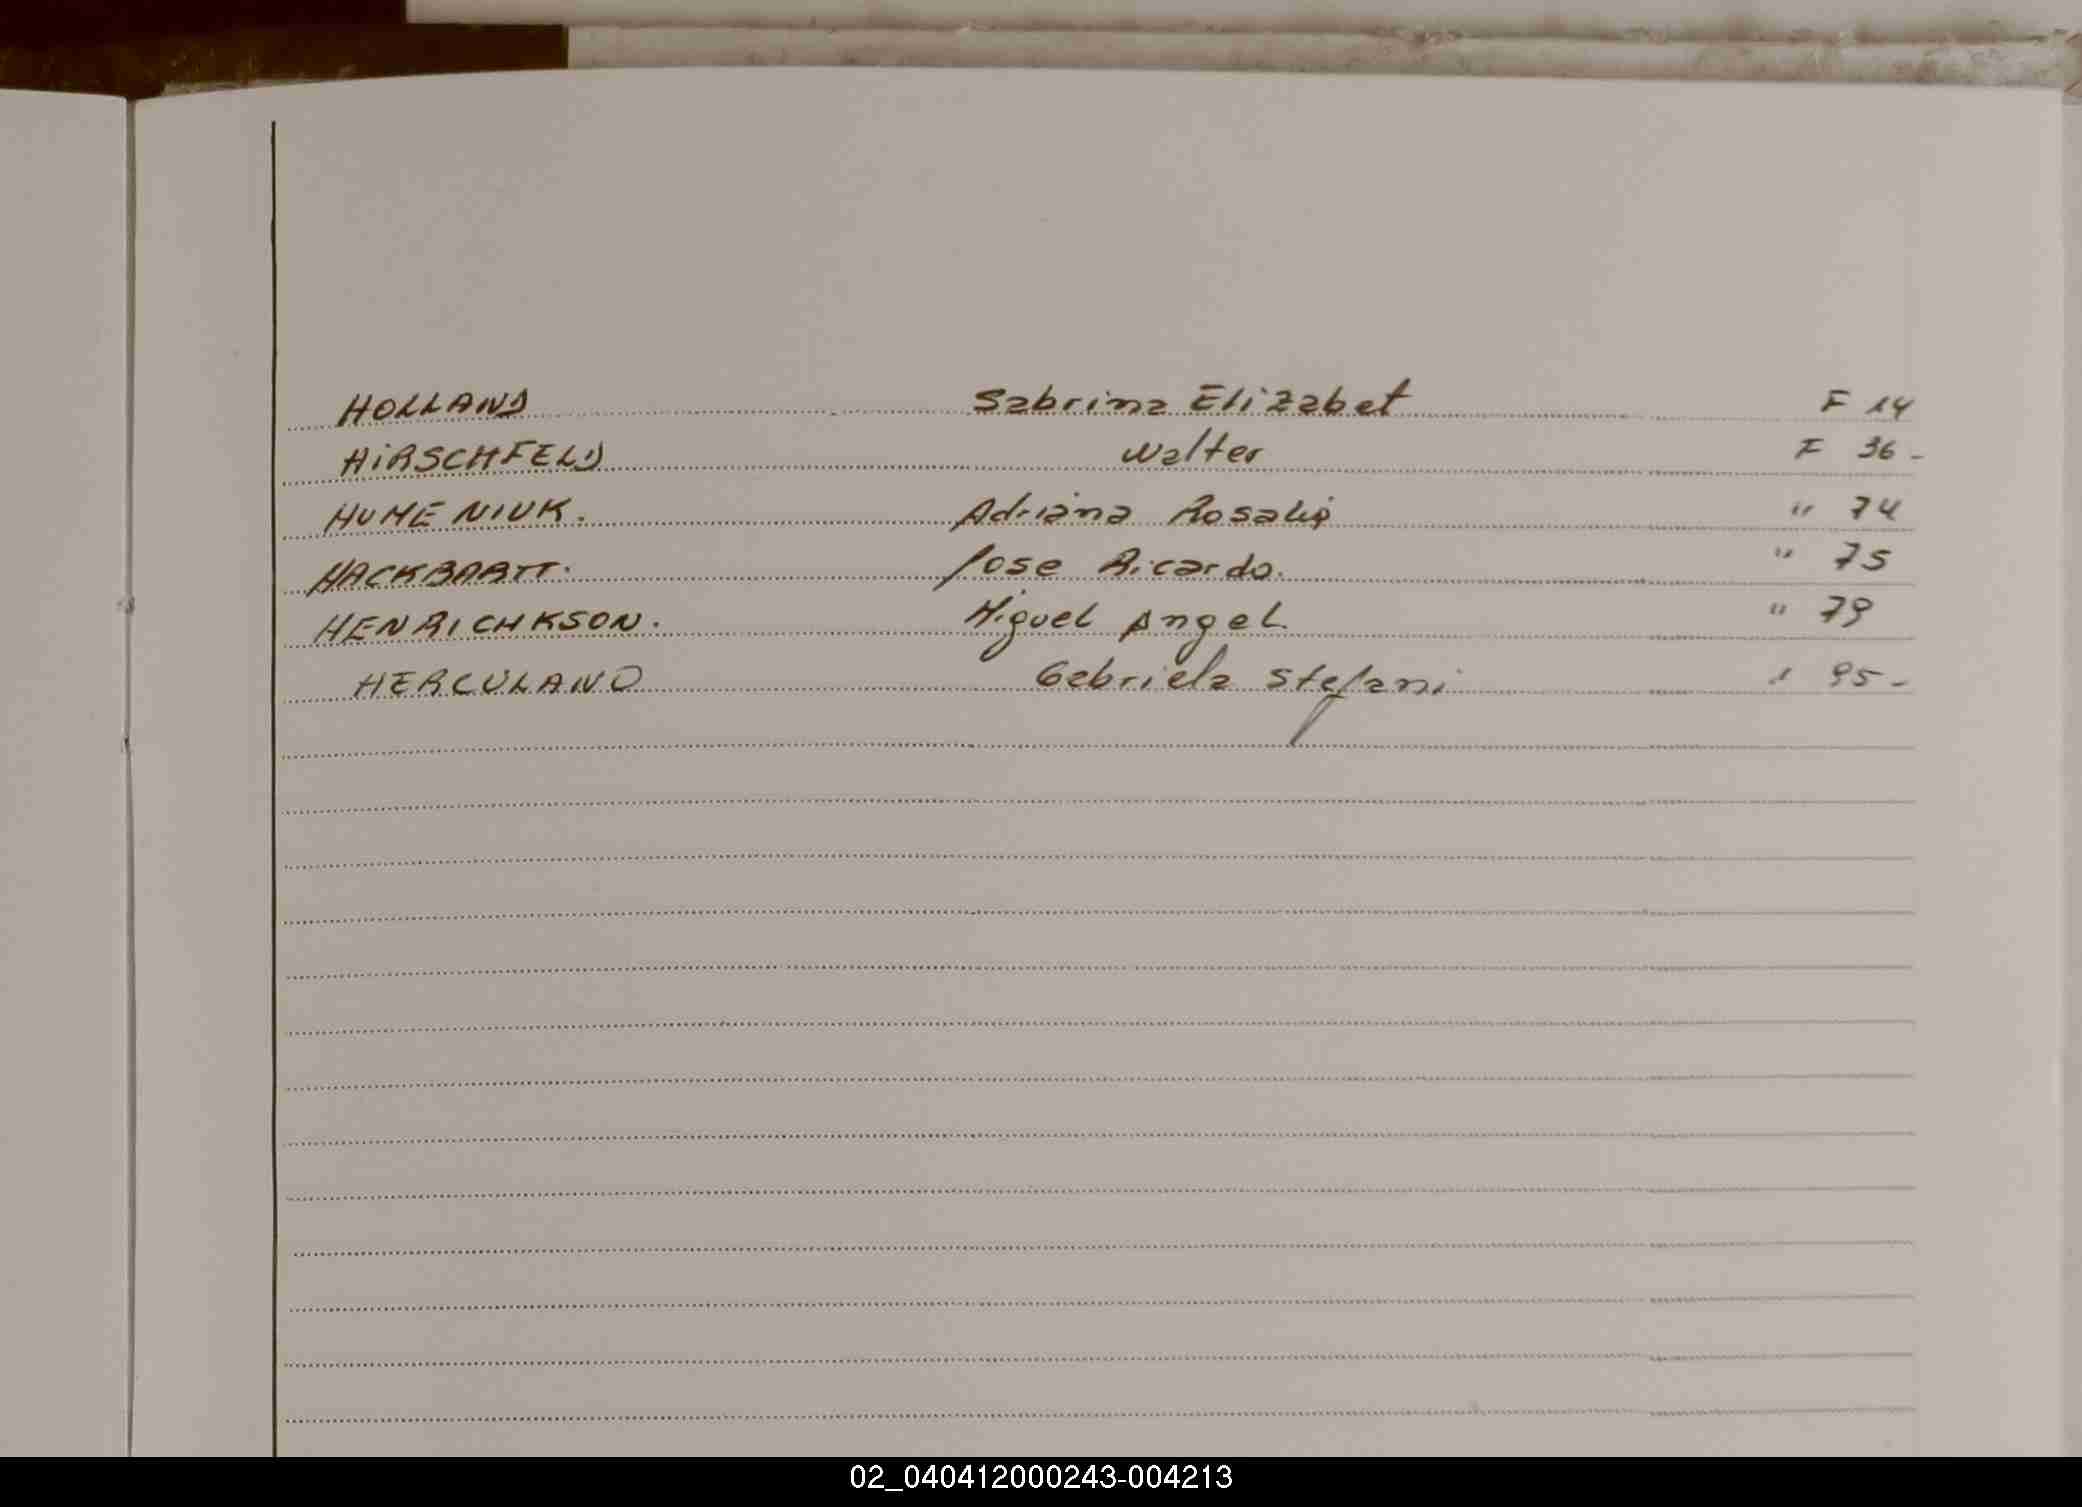 HOLLAND Sabrina Elizabet F 14
HIRSCHFELD Walter F 36 -
HUMENIUK. Adriana Rosalia " 74
HACKBARTT. Jose Ricardo. " 75
HENRICHKSON. Miguel Angel. " 79
HERCULANO Gabriela Stefani " 95 -
02_040412000243-004213